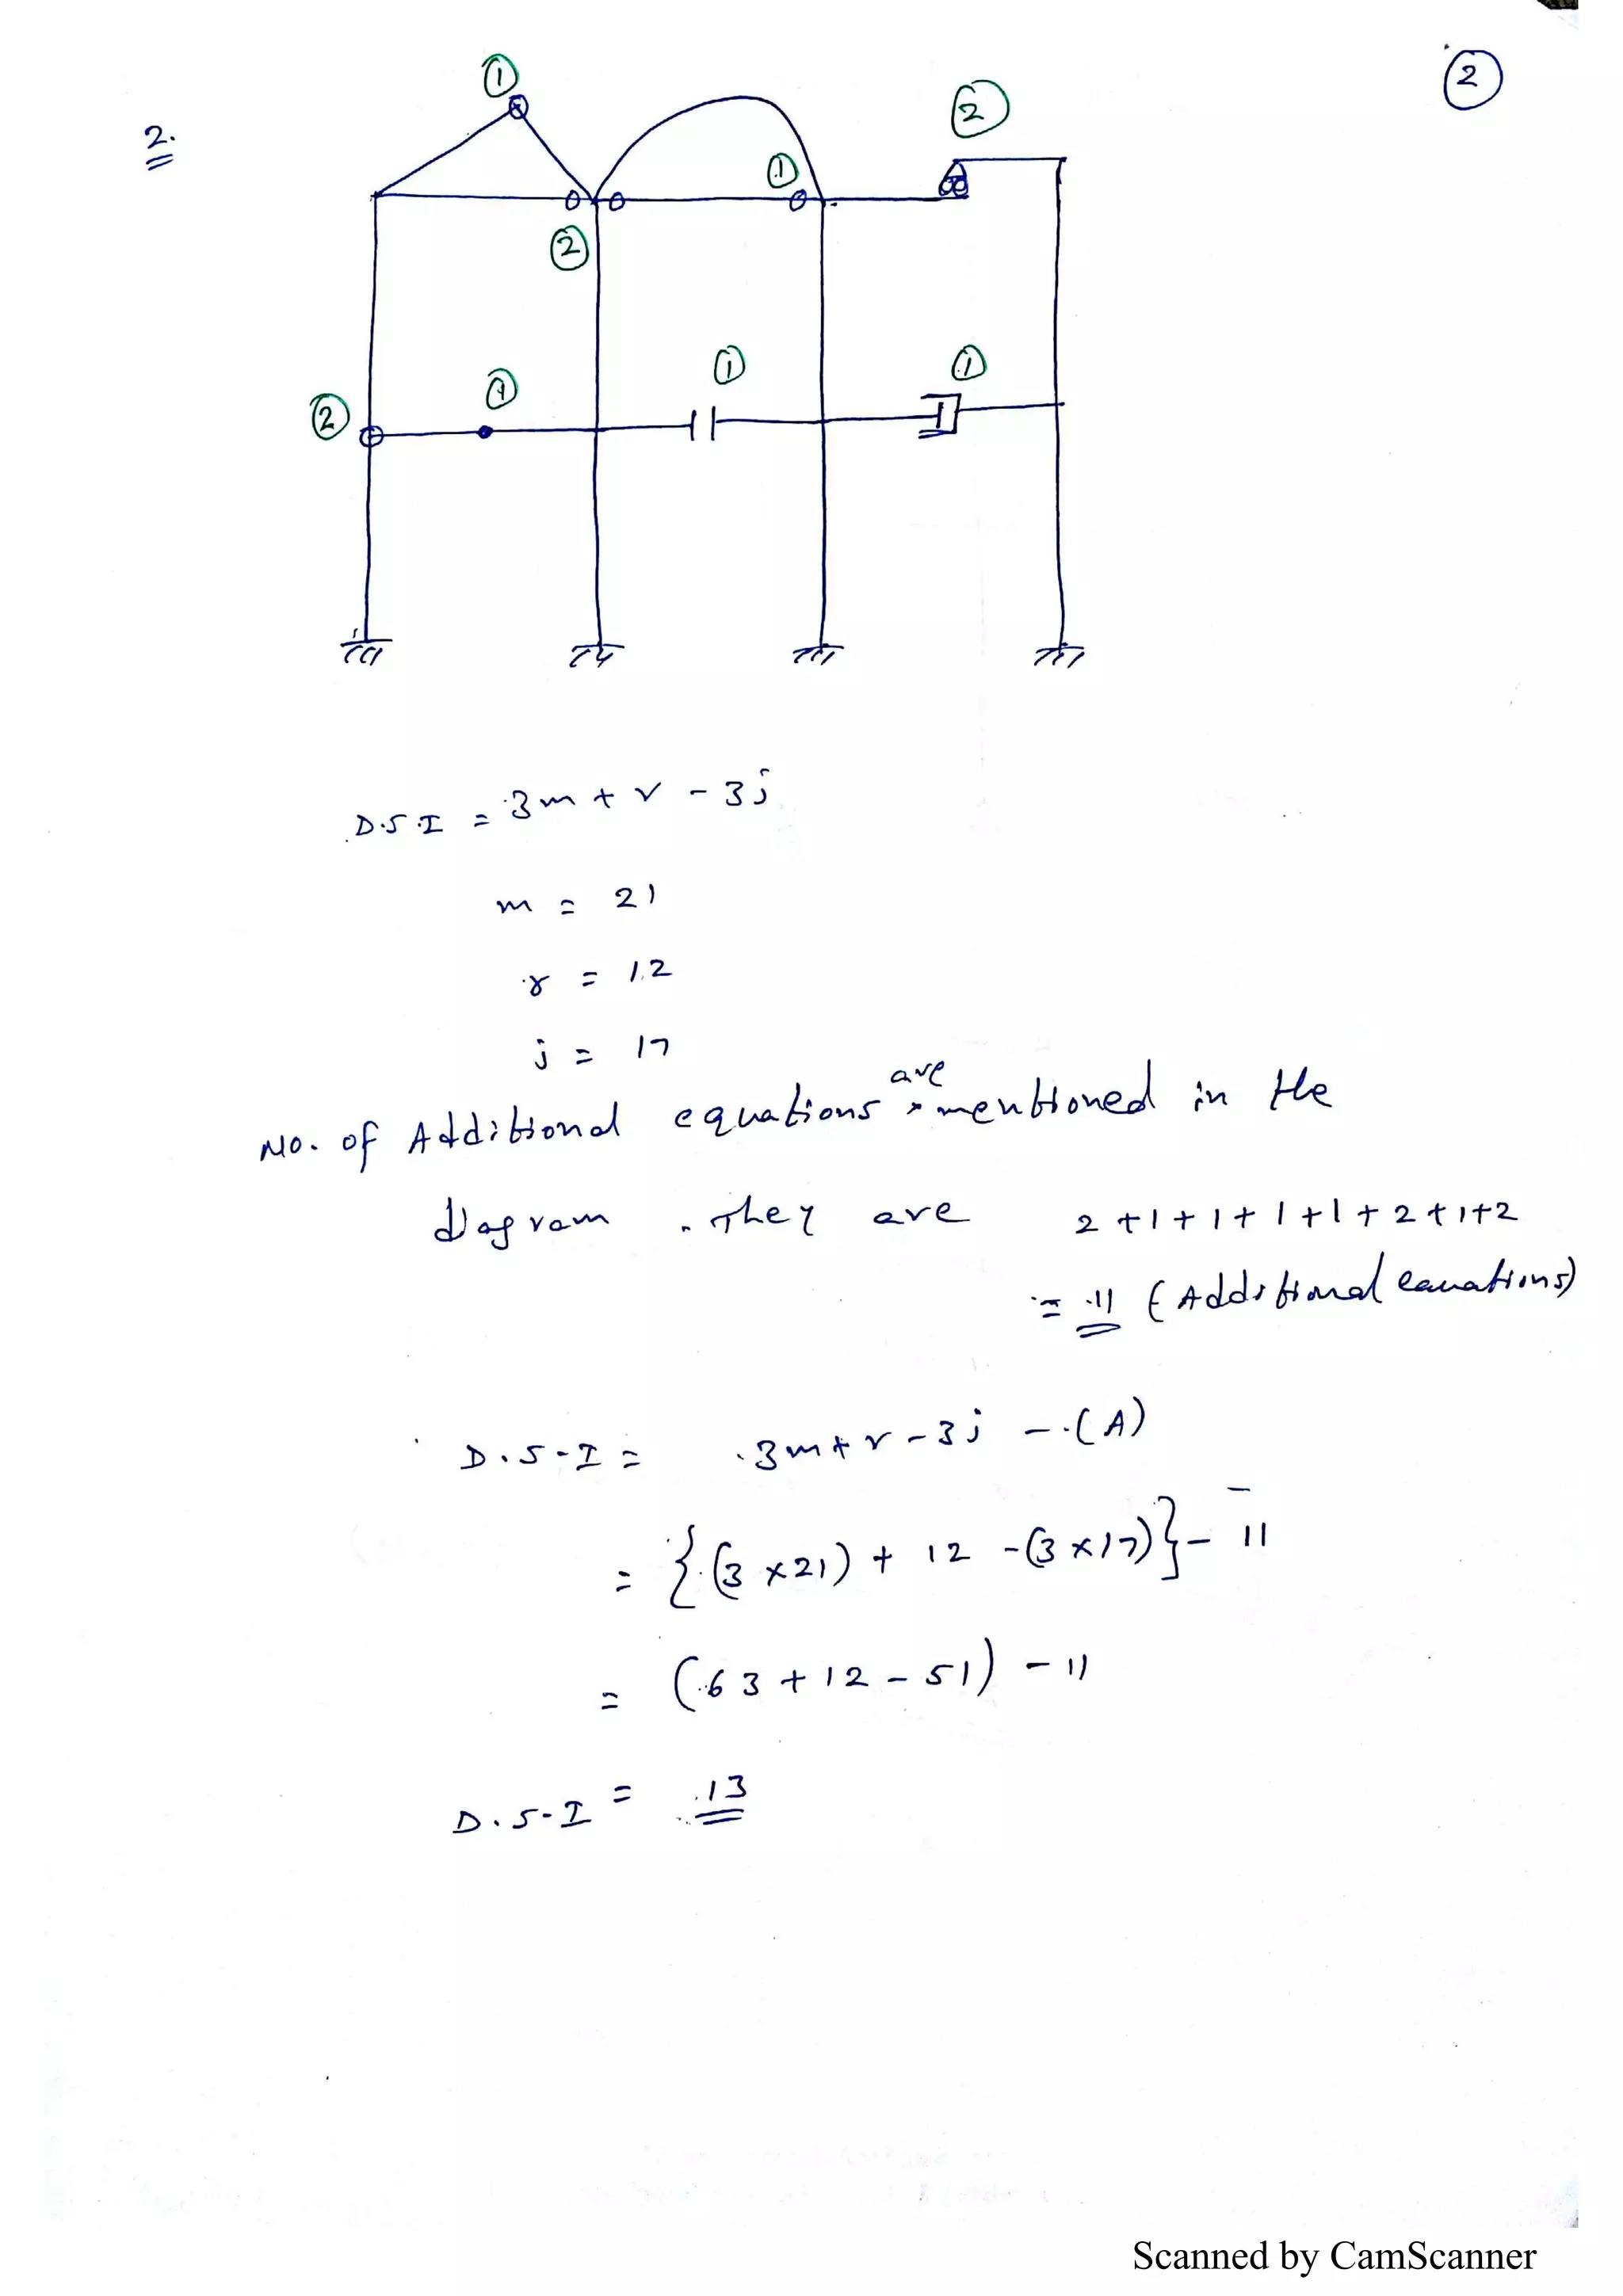 2
2.
1
2
1
2
1
1
2
1
D.S.I = 3m + r - 3j
m = 21
r = 12
j = 17
are
No. of Additional equations mentioned in the
diagram. They are 2+1+1+1+1+2+1+2
= 11 (Additional equations)
D.S-I = 3m+r-3j - (A)
= {(3×21) + 12 -(3×17)} - 11
= (63+12-51) - 11
D.S-I = 13
Scanned by CamScanner